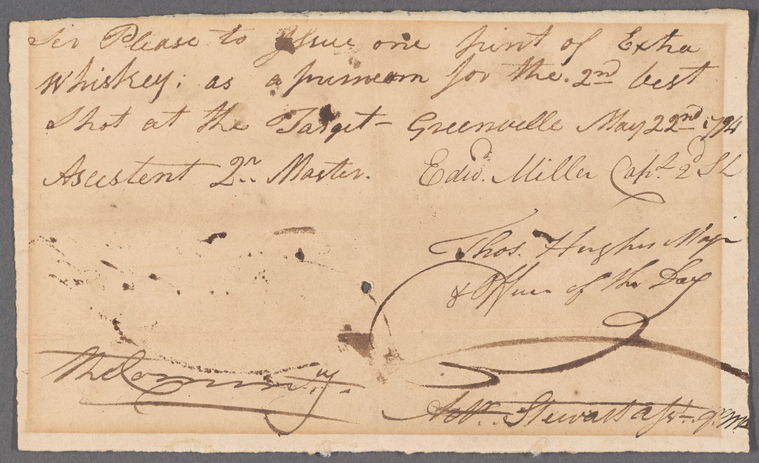 Sir Please to Issue one pint of Extra
Whiskey; as a primeom for the 2nd best
Shot at the Target - Greenvelle May 22nd 1794
Assestent Qr. Master. Edwd. Miller Capt. 2d SL
Thos. Hughes Majr
& Officer of the Day
The Commisy.
Stewart asst. qr. mr